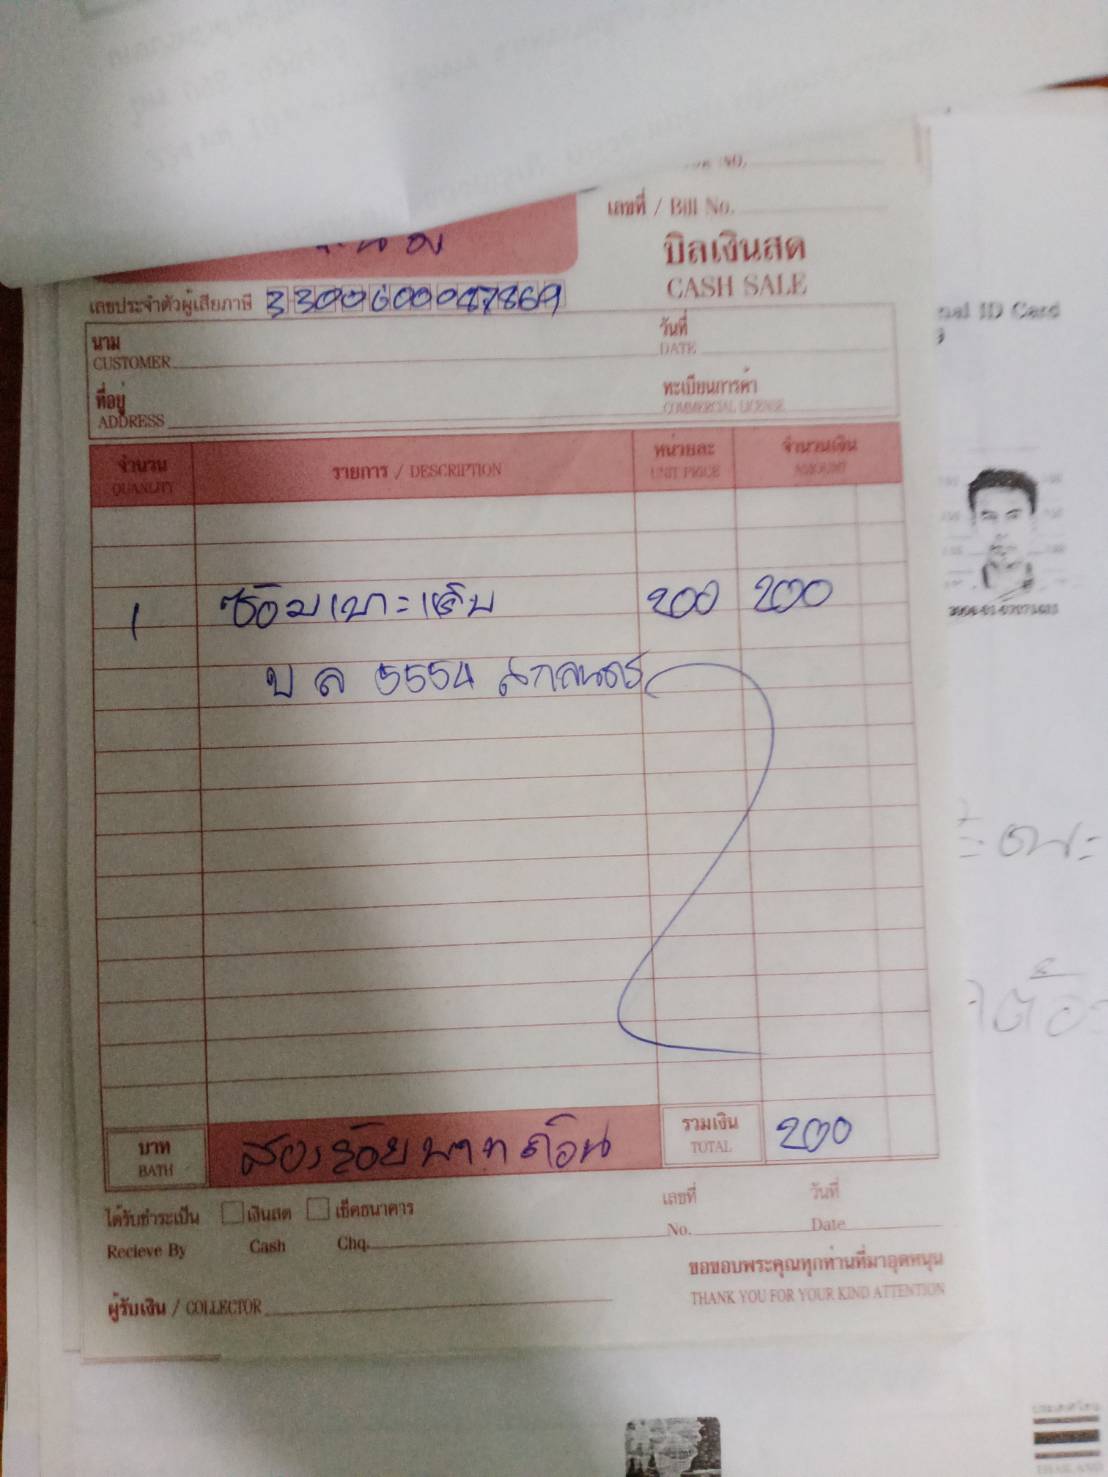 เลขที่ / Bill No.
บิลเงินสด
CASH SALE
เลขประจำตัวผู้เสียภาษี 3300600047869
นาม
CUSTOMER
วันที่
DATE
ที่อยู่
ADDRESS
ทะเบียนการค้า
COMMERCIAL LICENSE
จำนวน รายการ / DESCRIPTION หน่วยละ จำนวนเงิน
QUANLITY UNIT PRICE AMOUNT
1 ซ่อมเบาะเย็บ 200 200
บ ล 5554 สกลนคร
บาท
BATH
สองร้อยบาทถ้วน
รวมเงิน
TOTAL
200
ได้รับชำระเป็น เงินสด เช็คธนาคาร
Recieve By Cash Chq.
เลขที่ วันที่
No. Date
ขอขอบพระคุณทุกท่านที่มาอุดหนุน
THANK YOU FOR YOUR KIND ATTENTION
ผู้รับเงิน / COLLECTOR
nal ID Card
THAILAND